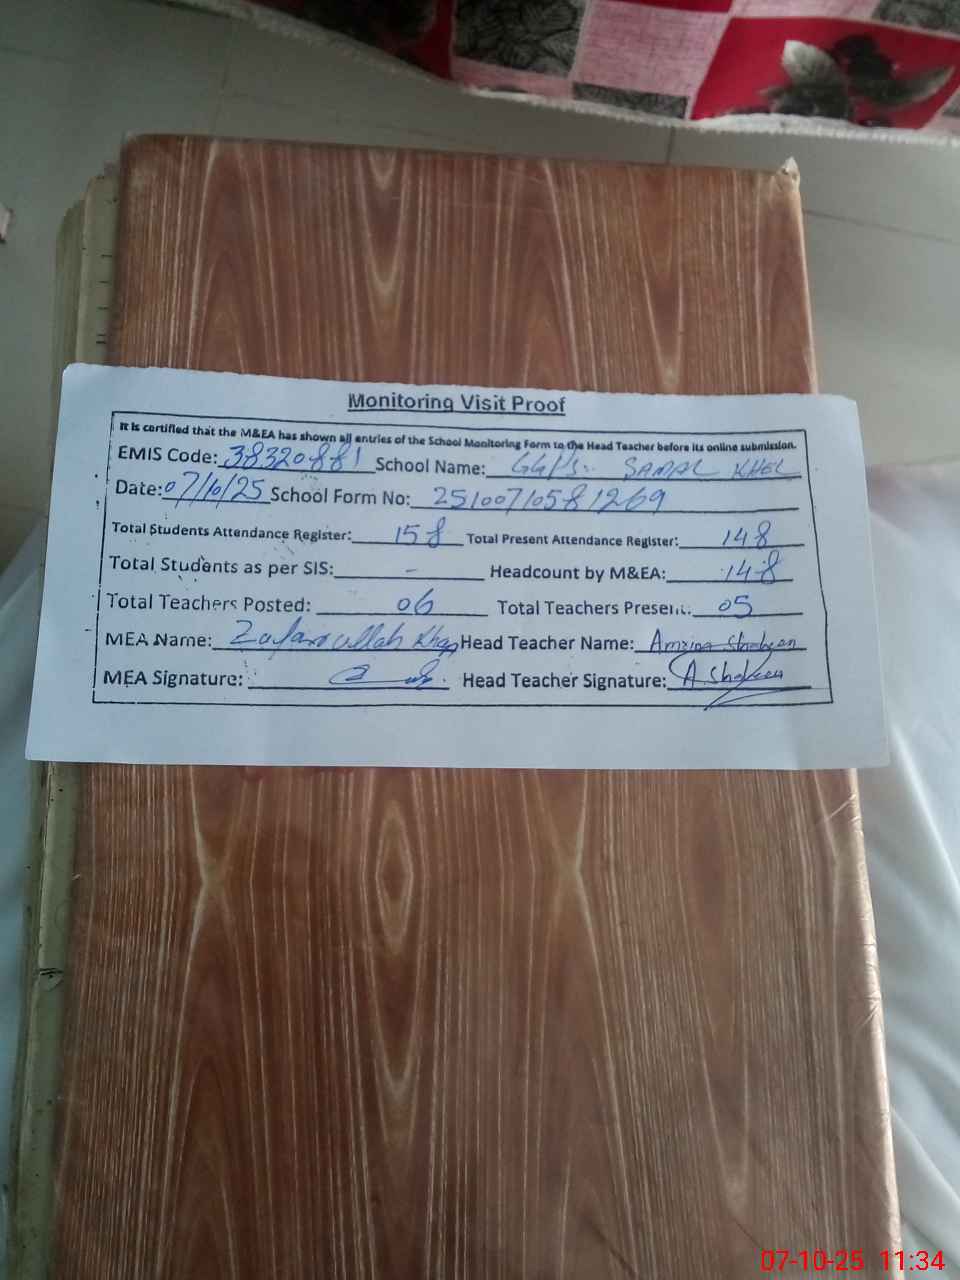 Monitoring Visit Proof
It is certified that the M&EA has shown all entries of the School Monitoring Form to the Head Teacher before its online submission.
EMIS Code: 38320881 School Name: GGPS. SAMAL KHEL
Date: 07/10/25 School Form No: 25100710581269
Total Students Attendance Register: 158 Total Present Attendance Register: 148
Total Students as per SIS: - Headcount by M&EA: 148
Total Teachers Posted: 06 Total Teachers Present: 05
MEA Name: Zafarullah Khan Head Teacher Name: Amina Shaheen
MEA Signature: Head Teacher Signature: A Shaheen
07-10-25 11:34